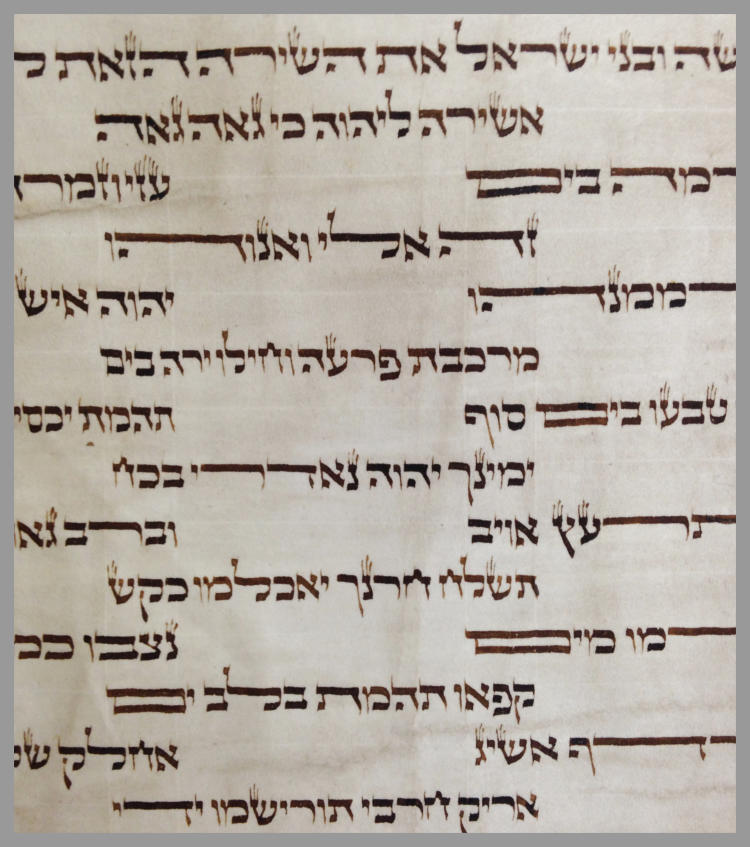 ובני ישראל את השירה הזאת
אשירה ליהוה כי גאה גאה
רמה בים עזי וזמר
זה אלי ואנוהו
ממנהו יהוה איש
מרכבת פרעה וחילו ירה בים
טבעו בים סוף תהמת יכסי
ימינך יהוה נאדרי בכח
תרעץ אויב וברב גאו
תשלח חרנך יאכלמו כקש
מו מים נצבו כמ
קפאו תהמת בלב ים
דף אשיג אחלק של
אריק חרבי תורישמו ידי